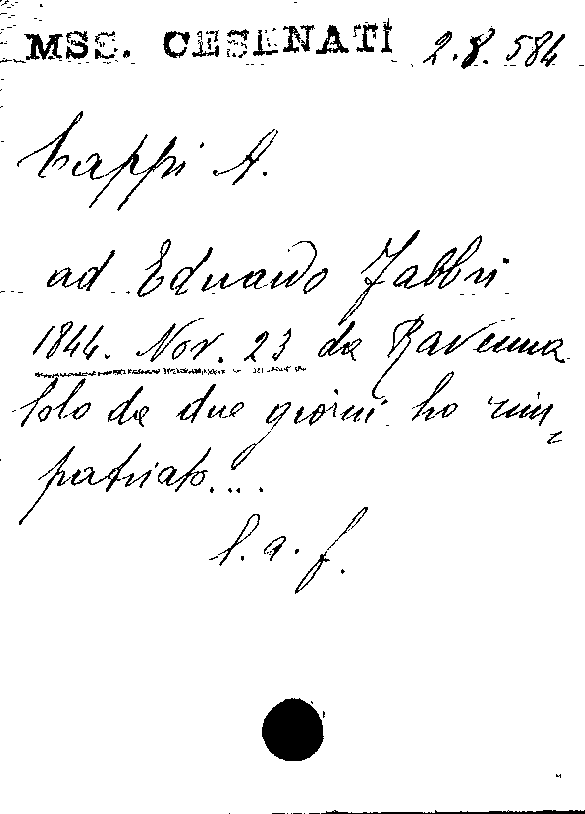 MSS. CESENATI 2.8.584
Cappi A.
ad Eduardo Fabbri
1844. Nov. 23 da Ravenna
Solo da due giorni ho rim,
patriato....
l. a. f.